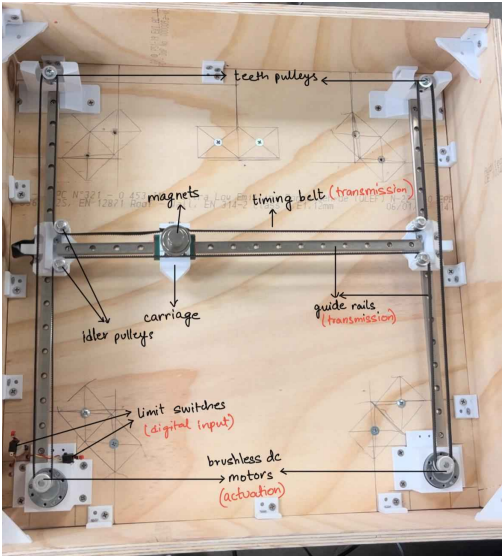 teeth pulleys
magnets
timing belt (transmission)
carriage
guide rails
(transmission)
Idler pulleys
limit switches
(digital input)
brushless dc
motors
(actuation)